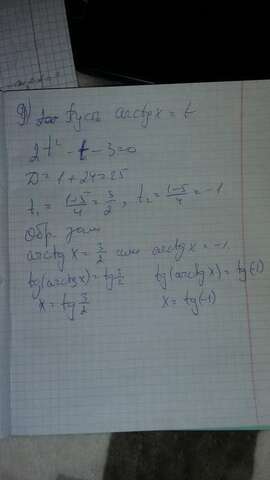 9) Пусть arctg x = t
2t² - t - 3 = 0
D = 1 + 24 = 25
t₁ = (1+5)/4 = 3/2, t₂ = (1-5)/4 = -1
Обр. зам
arctg x = 3/2 или arctg x = -1
tg(arctg x) = tg 3/2 tg(arctg x) = tg(-1)
x = tg 3/2 x = tg(-1)